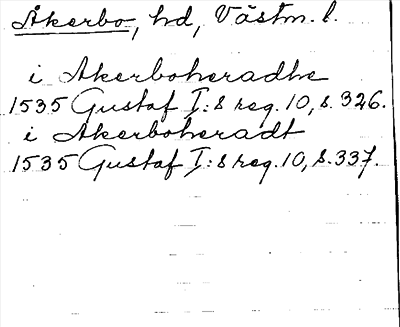 Åkerbo, hd, Västm. l.
i Akerboheradhe
1535 Gustaf I:s reg. 10, s. 326.
i Akerboheradt
1535 Gustaf I:s reg. 10, s. 337.